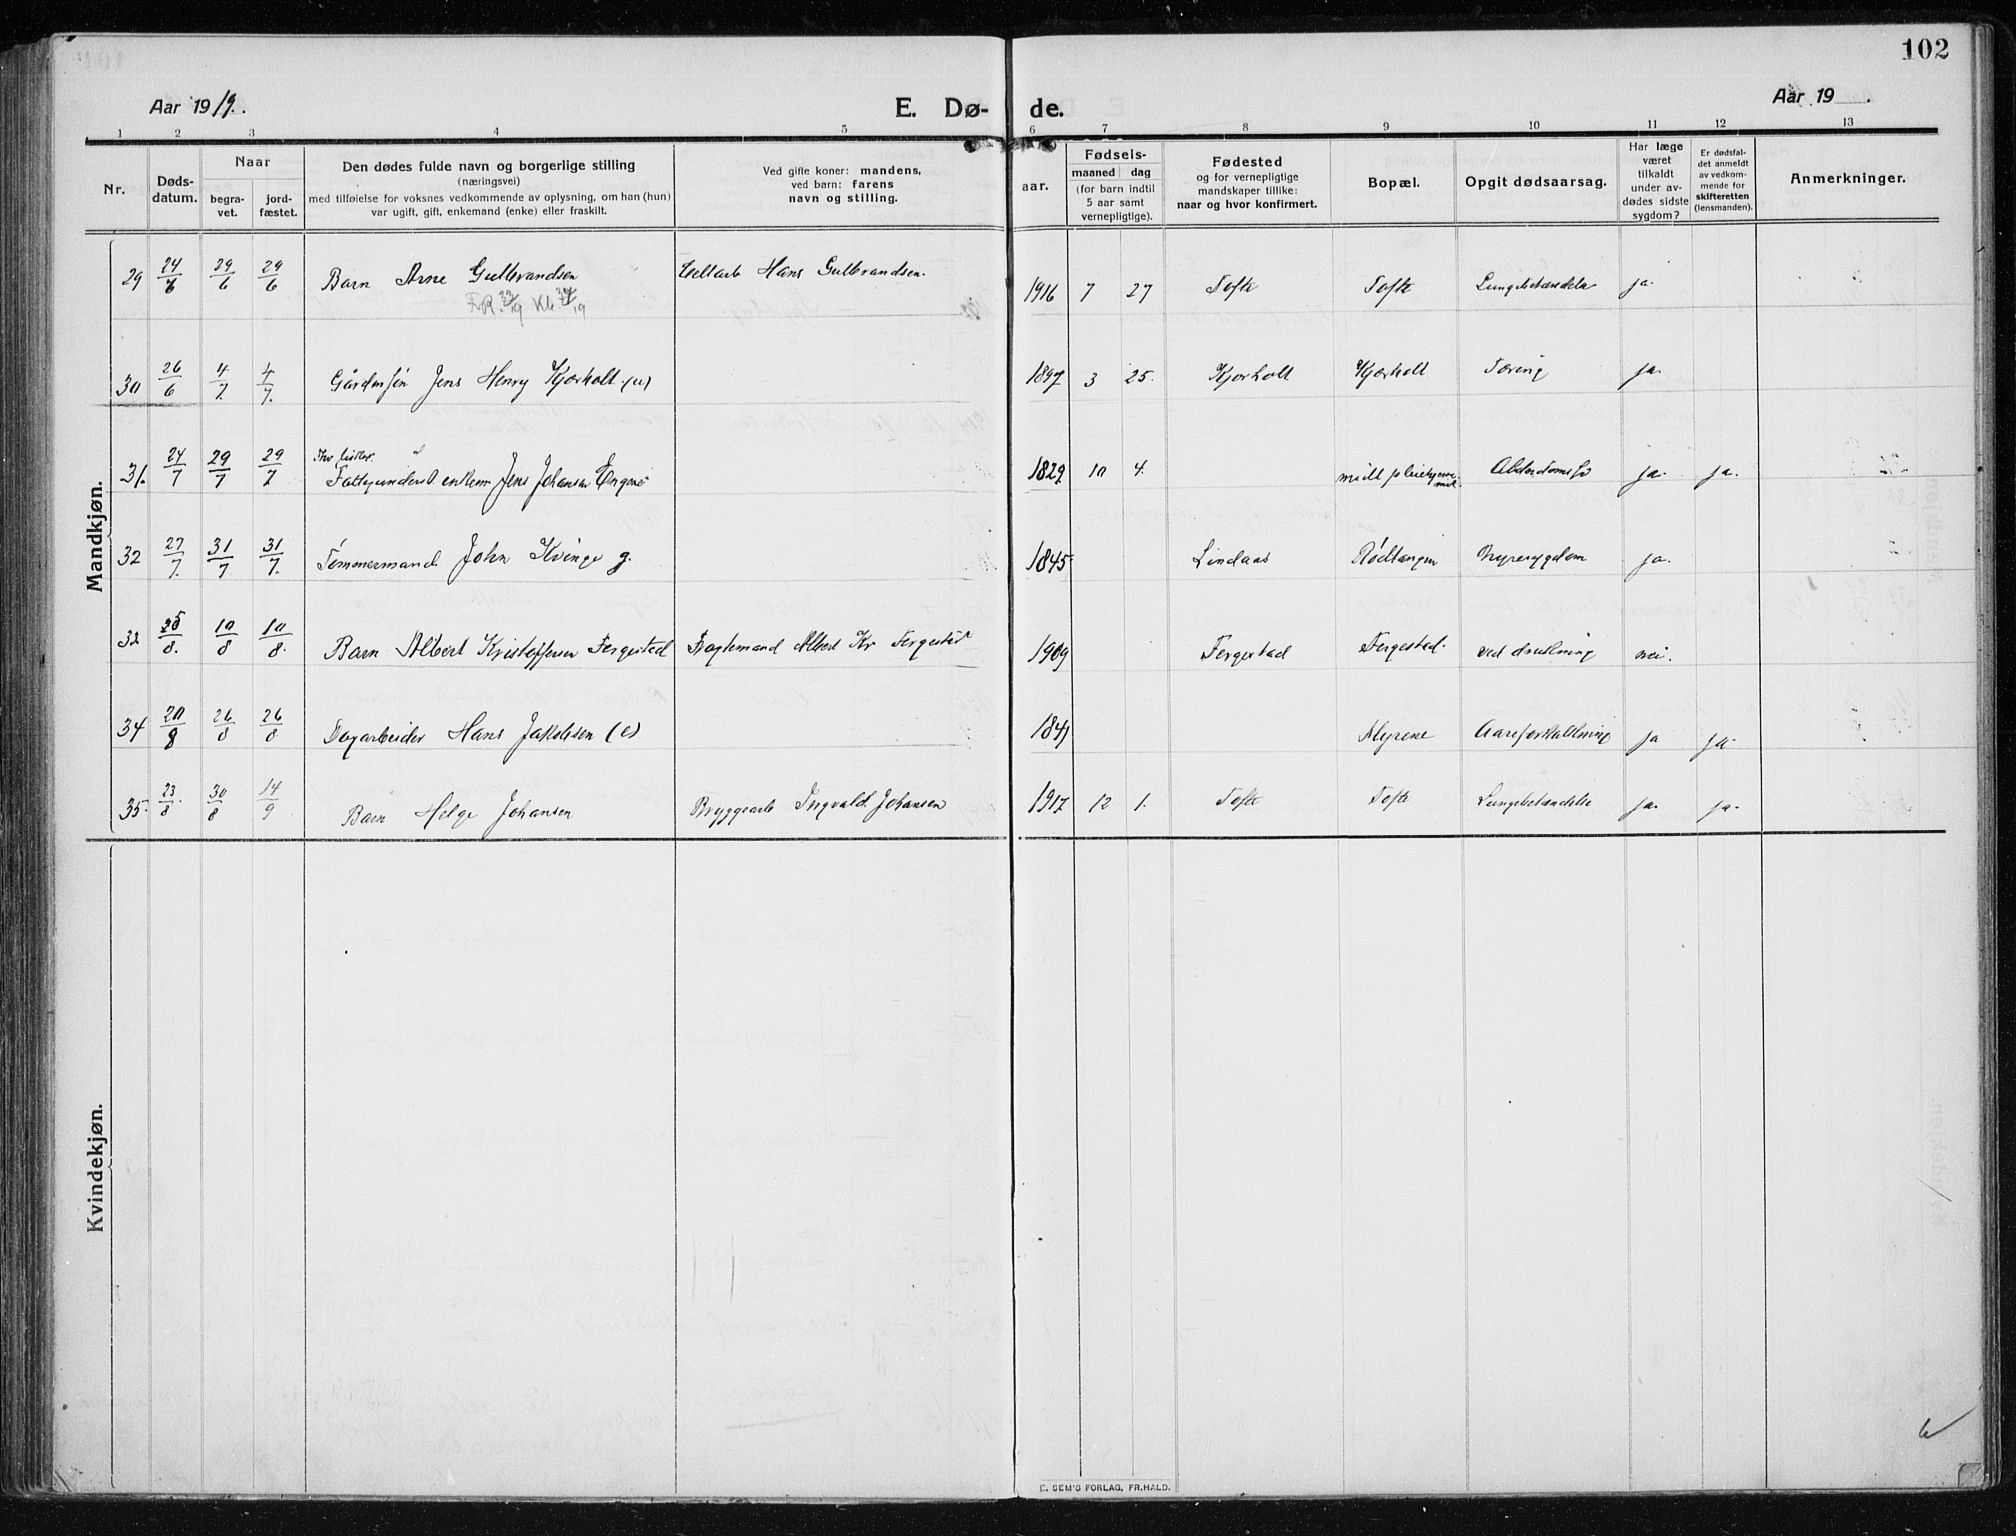 102
Aar 1919.
E. Dø-
de.
Aar 19 .
1 2 3 4 5 6 7 8 9 10 11 12 13
Nr.
Døds-
datum.
Naar
begra-
vet.
jord-
fæstet.
Den dødes fulde navn og borgerlige stilling
(næringsvei)
med tilføielse for voksnes vedkommende av oplysning, om han (hun)
var ugift, gift, enkemand (enke) eller fraskilt.
Ved gifte koner: mandens,
ved barn: farens
navn og stilling.
aar.
Fødsels-
maaned dag
(for barn indtil
5 aar samt
vernepligtige).
Fødested
og for vernepligtige
mandskaper tillike:
naar og hvor konfirmert.
Bopæl.
Opgit dødsaarsag.
Har læge
været
tilkaldt
under av-
dødes sidste
sygdom?
Er dødsfal-
det anmeldt
av vedkom-
mende for
skifteretten
(lensmanden).
Anmerkninger.
Mandkjøn.
29 24/6 29/6 29/6 Barn Arne Gulbrandsen Cellarb Hans Gulbrandsen. 1916 7 27 Tofte Tofte Lungebetændelse ja.
F.R. 33/19 Kb 34/19
30 26/6 4/7. 4/7. Gårdersøn Jens Henry Kjærholt (u) 1897 3 25. Kjærholt Kjærholt Tæring ja.
31. 24/7 29/7 29/7 Fattigunderst enkem Jens Johansen 1829 10 4. Alderdomssv ja. ja.
32 27/7. 31/7 31/7. Tømmermand John Kvinge g. 1845 Lindaas Rødtangen Nyresygdom ja.
32 25/8. 10/8 10/8. Barn Albert Kristoffersen Fergestad Fragtemand Albert Kr Fergestad 1909 Fergestad Fergestad. ved drukning nei.
34 20/8 26/8 26/8 Dagarbeider Hans Jakobsen (e) 1841 Myrene Aareforkalkning ja ja
35. 23/8. 30/8 14/9 Barn Helge Johansen Bryggearb Ingvald Johansen 1917 12 1. Tofte Tofte Lungebetændelse ja. ja.
Kvindekjøn.
E. SEM'S FORLAG, FR.HALD.